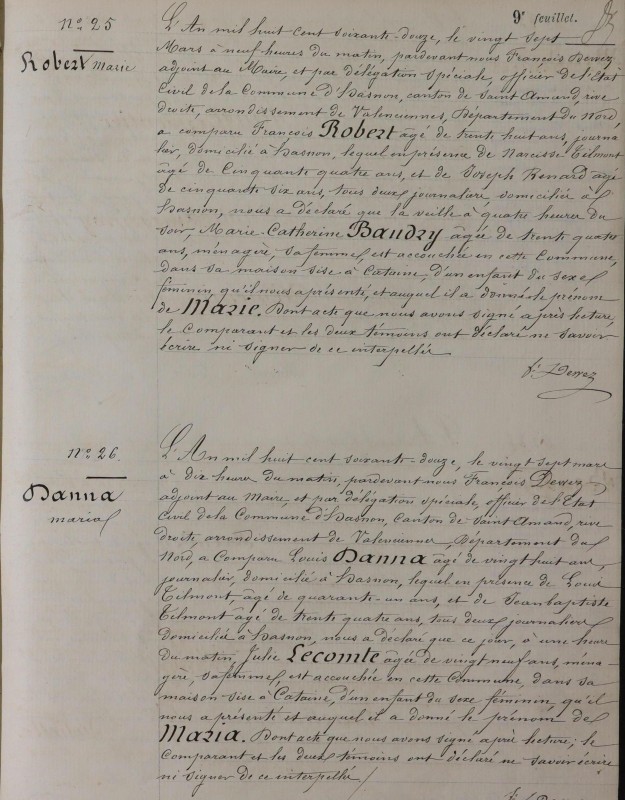 9e feuillet.
No 25
Robert Marie
L'An mil huit cent soixante-douze, le vingt sept
Mars à neuf heures du matin, pardevant nous François Dewez
adjoint au Maire, et par délégation spéciale, officier de l'Etat
Civil de la Commune d'hasnon, canton de Saint Amand, rive
droite, arrondissement de Valenciennes, Département du Nord,
a comparu François Robert âgé de trente huit ans, journa
lier, domicilié à hasnon, lequel en présence de Narcisse Tilmont
âgé de Cinquante quatre ans, et de Joseph Renard âgé
de cinquante six ans, tous deux journaliers, domiciliés à
hasnon, nous a déclaré que la veille à quatre heures du
soir, Marie-Catherine Baudry âgée de trente quatre
ans, ménagère, sa femme, est accouchée en cette Commune,
dans sa maison sise à Cataine, d'un enfant du sexe
féminin, qu'il nous a présenté, et auquel il a donné le prénom
de Marie. Dont acte que nous avons signé après lecture,
le Comparant et les deux témoins ont déclaré ne savoir
écrire ni signer de ce interpellés
f. Dewez
No 26.
Danna
maria
L'An mil huit cent soixante-douze, le vingt sept mars
à dix heures du matin, pardevant nous François Dewez
adjoint au Maire, et par délégation spéciale, officier de l'Etat
Civil de la Commune d'hasnon, Canton de Saint Amand, rive
Droite, arrondissement de Valenciennes, Département du
Nord, a Comparu Louis Danna âgé de vingt huit ans,
journalier, domicilié à hasnon, lequel en présence de Louis
Tilmont, âgé de quarante-un ans, et de Jean baptiste
Tilmont âgé de trente quatre ans, tous deux journaliers
domiciliés à hasnon, nous a déclaré que ce jour, à une heure
du matin, Julie Lecomte âgée de vingt neuf ans, ména-
gère, sa femme, est accouchée en cette Commune, dans sa
maison sise à Cataine, d'un enfant du sexe féminin, qu'il
nous a présenté et auquel il a donné le prénom de
Maria. Dont acte que nous avons signé après lecture; le
Comparant et les deux témoins ont déclaré ne savoir écrire
ni signer de ce interpellés